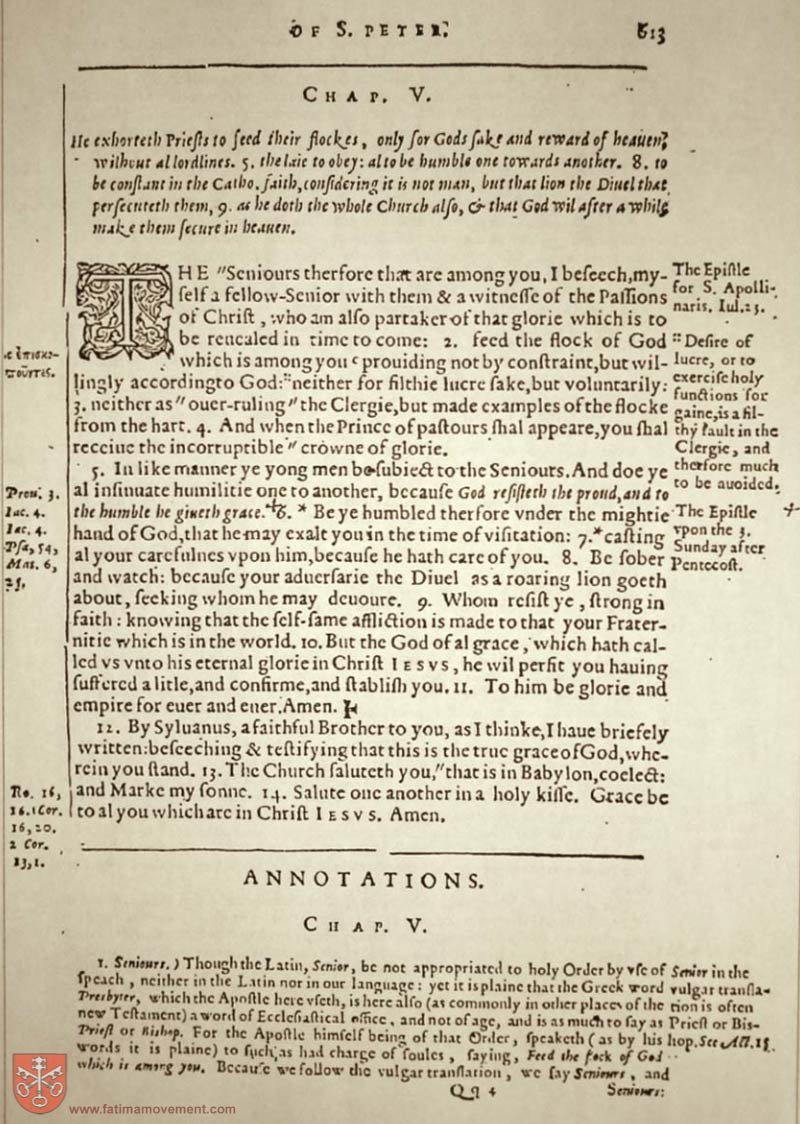 OF S. PETER.
613
CHAP. V.
He exhorteth Prieſts to feed their flockes, only for Gods ſake and reward of heauen,
without al lordlines. 5. the laie to obey: al to be humble one towards another. 8. to
be conſtant in the Catho. faith, conſidering it is not man, but that lion the Diuel that
perſecuteth them, 9. as he doth the whole Church alſo, & that God wil after a while
make them ſecure in heauen.
THE "Seniours therfore that are among you, I beſeech, my-
ſelf a fellow-Senior with them & a witneſſe of the Paſſions
of Chriſt, who am alſo partaker of that glorie which is to
be reuealed in time to come: 2. feed the flock of God
which is among you ᶜ prouiding not by conſtraint, but wil-
lingly according to God: :: neither for filthie lucre ſake, but voluntarily:
3. neither as "ouer-ruling "the Clergie, but made examples of the flocke
from the hart. 4. And when the Prince of paſtours ſhal appeare, you ſhal
receiue the incorruptible "crowne of glorie.
5. In like manner ye yong men be ſubiect to the Seniours. And doe ye
al inſinuate humilitie one to another, becauſe God reſiſteth the proud, and to
the humble he giueth grace. ✠ 6. * Be ye humbled therfore vnder the mightie
hand of God, that he may exalt you in the time of viſitation: 7. * caſting
al your carefulnes vpon him, becauſe he hath care of you. 8. Be ſober
and watch: becauſe your aduerſarie the Diuel as a roaring lion goeth
about, ſeeking whom he may deuoure. 9. Whom reſiſt ye, ſtrong in
faith: knowing that the ſelf-ſame affliction is made to that your Frater-
nitie which is in the world. 10. But the God of al grace, which hath cal-
led vs vnto his eternal glorie in Chriſt IESVS, he wil perfit you hauing
ſuffered a litle, and confirme, and ſtabliſh you. 11. To him be glorie and
empire for euer and euer. Amen.
12. By Syluanus, a faithful Brother to you, as I thinke, I haue briefely
written: beſeeching & teſtifying that this is the true grace of God, whe-
rein you ſtand. 13. The Church ſaluteth you, "that is in Babylon, coelect:
and Marke my ſonne. 14. Salute one another in a holy kiſſe. Grace be
to al you which are in Chriſt IESVS. Amen.
ᶜ ἐπισκο-
ποῦντες.
Prou. 3.
Iac. 4.
Iac. 4.
Pſa. 54,
Mat. 6,
25.
Ro. 16,
16. 1 Cor.
16, 20.
2 Cor.
13, 1.
The Epiſtle
for S. Apolli-
naris. Iul. 23.
:: Deſire of
lucre, or to
exerciſe holy
functions for
gaine, is a fil-
thy fault in the
Clergie, and
therfore much
to be auoided.
The Epiſtle
vpon the 3.
Sunday after
Pentecoſt.
ANNOTATIONS.
CHAP. V.
1. Seniours.) Though the Latin, Senior, be not appropriated to holy Order by vſe of
ſpeach, neither in the Latin nor in our language: yet it is plaine that the Greek word
Presbyter, which the Apoſtle here vſeth, is here alſo (as commonly in other places of the
new Teſtament) a word of Eccleſiaſtical office, and not of age, and is as much to ſay as Prieſt or Biſ-
Prieſt or Bishop. For the Apoſtle himſelf being of that Order, ſpeaketh (as by his
words it is plaine) to ſuch as had charge of ſoules, ſaying, Feed the flock of God
which is among you. Becauſe we follow the vulgar tranſlation, we ſay Seniours, and
Senior in the
vulgar tranſla-
tion is often
hop. See Act. 15
Qq 4
Seniours:
www.fatimamovement.com